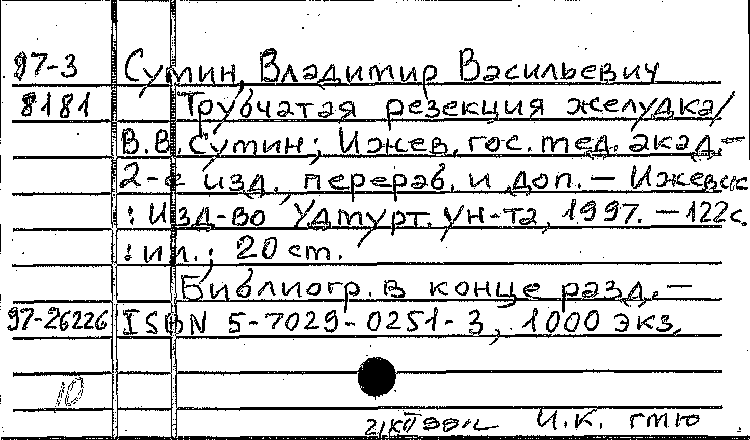 97-3 Сумин, Владимир Васильевич
8181 Трубчатая резекция желудка/
В.В.Сумин; Ижев. гос. мед. акад.—
2-е изд., перераб. и доп. — Ижевск
: Изд-во Удмурт. ун-та, 1997. — 122с.
: ил.; 20 см.
Библиогр. в конце разд. —
97-26226 ISBN 5-7029-0251-3, 1000 экз.
10
И.К. гмю